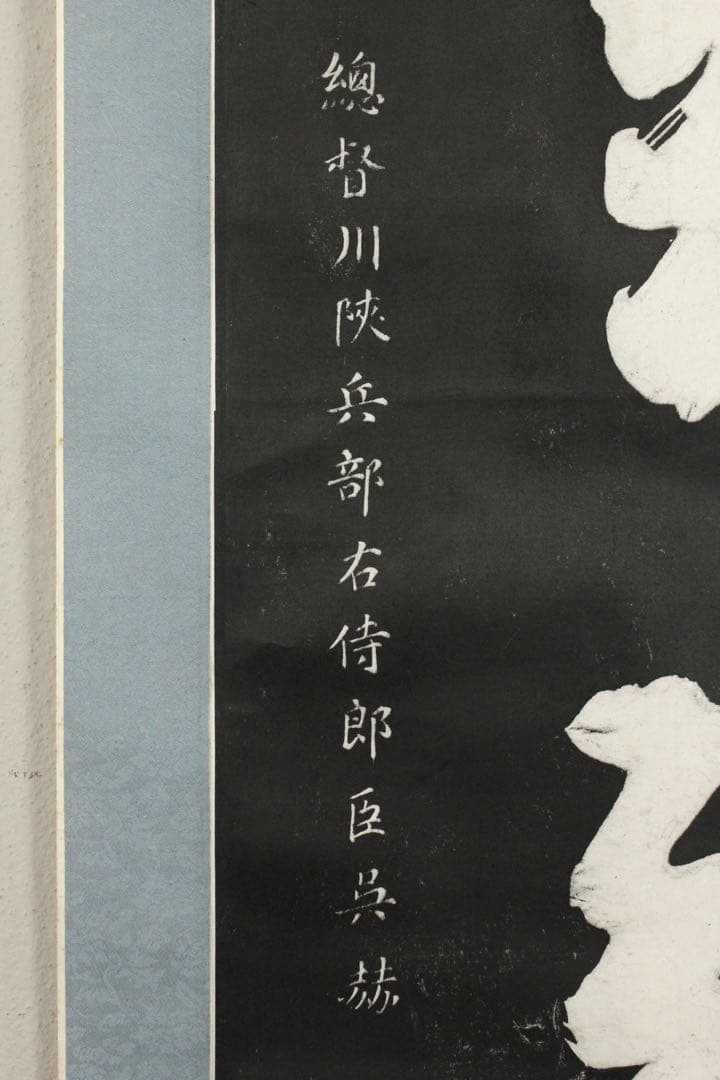 總督川陝兵部右侍郎臣吳赫